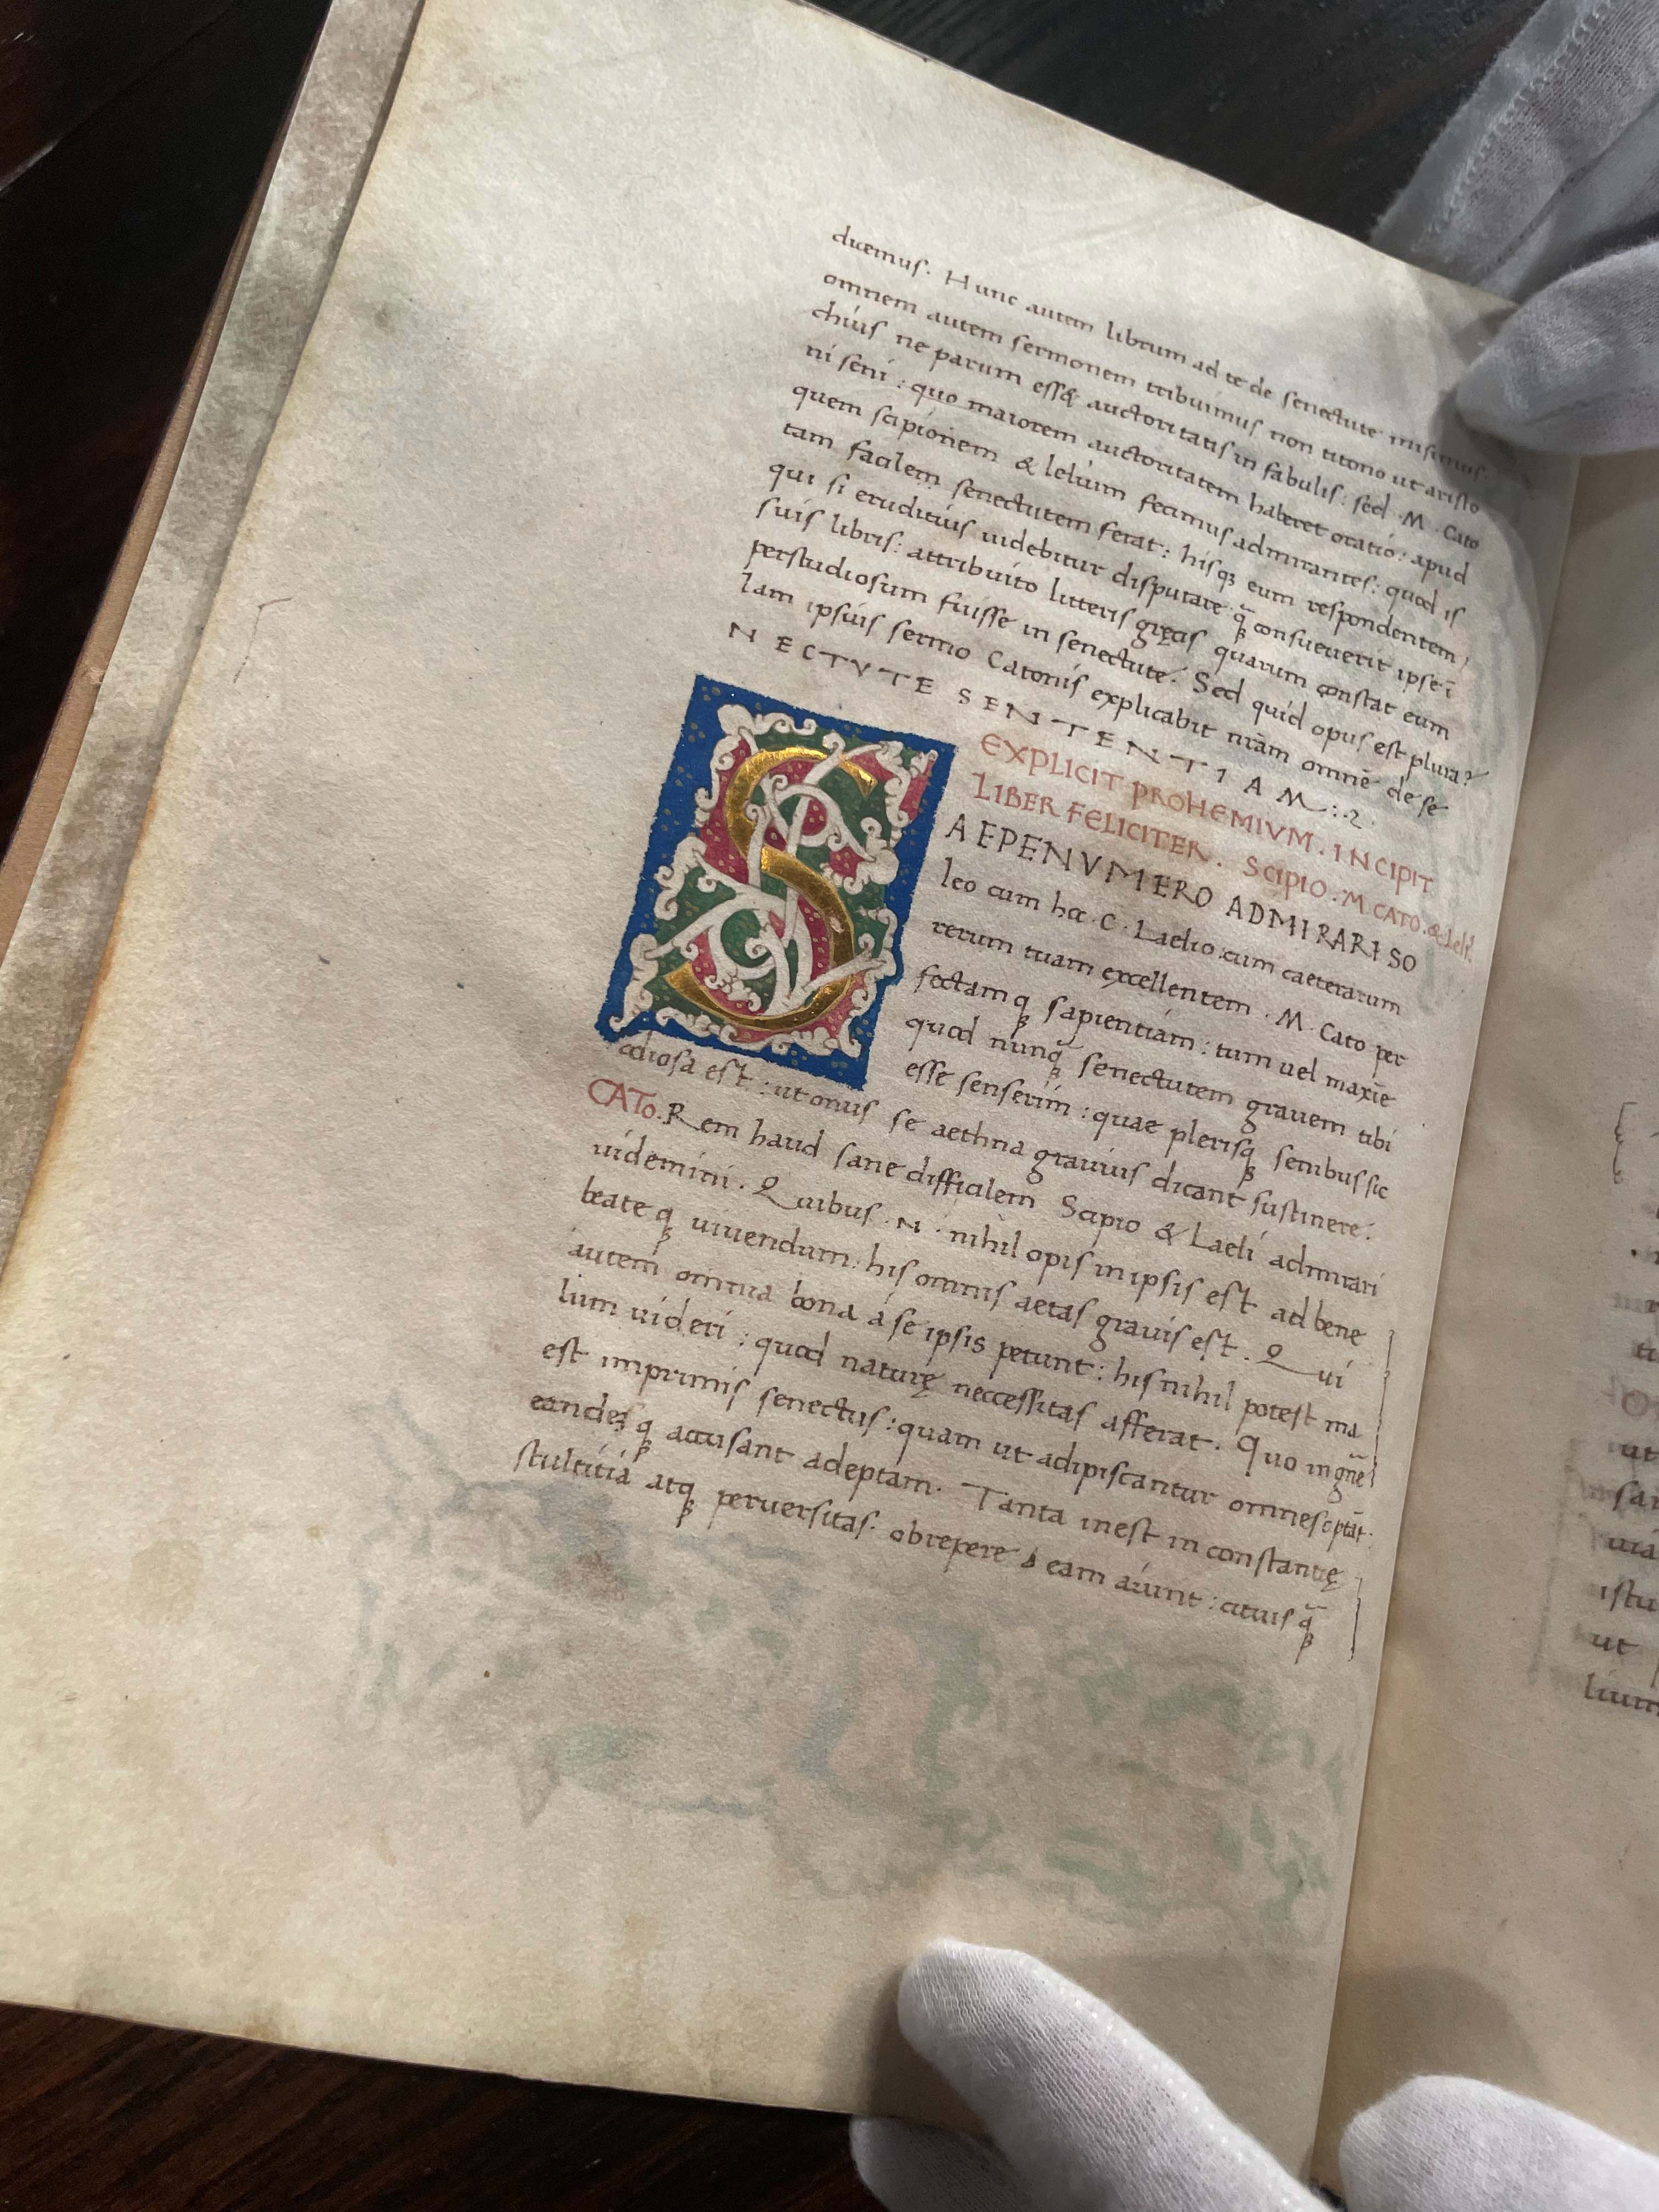 ducemus. Hunc autem librum ad te de senectute misimus.
omnem autem sermonem tribuimus non titono ut aristo
chius ne parum ess& auctoritatis in fabulis: sed .M. Cato
ni seni: quo maiorem auctoritatem haberet oratio: apud
quem scipionem & lelium fecimus admirantes: quod is
tam facilem senectutem ferat: hisq; eum respondentem,
qui si eruditius uidebitur disputare q̃ consueuerit ipse ī
suis libris: attribuito litteris gręcis quarum constat eum
perstudiosum fuisse in senectute. Sed quid opus est plura?
Iam ipsius sermo Catonis explicabit nr̄am omnē de se
NECTVTE SENTENTIAM:.
EXPLICIT PROHEMIVM. INCIPIT
LIBER FELICITER. SCIPIO. M. CATO. & leli'.
SAEPENVMERO ADMIRARI SO
leo cum hoc .C. Laelio: cum caeterarum
rerum tuam excellentem .M. Cato per
fectamq; sapientiam: tum uel maxīe
quod nunq̃ senectutem grauem tibi
esse senserim: quae plerisq; senibus sic
odiosa est: ut onus se aethna grauius dicant sustinere.
CATO. Rem haud sane difficilem Scipio & Laeli admirari
uidemini. Quibus .N. nihil opis in ipsis est ad bene
beateq; uiuendum: his omnis aetas grauis est. Qui
autem omnia bona á se ipsis petunt: his nihil potest ma
lum uideri: quod naturę neccessitas afferat. Quo in gn̄e
est imprimis senectus: quam ut adipiscantur omnes optāt.
eandēq; accusant adeptam. Tanta inest inconstantię
stultitia atq; peruersitas. obrepere eam aiunt: citius q̃